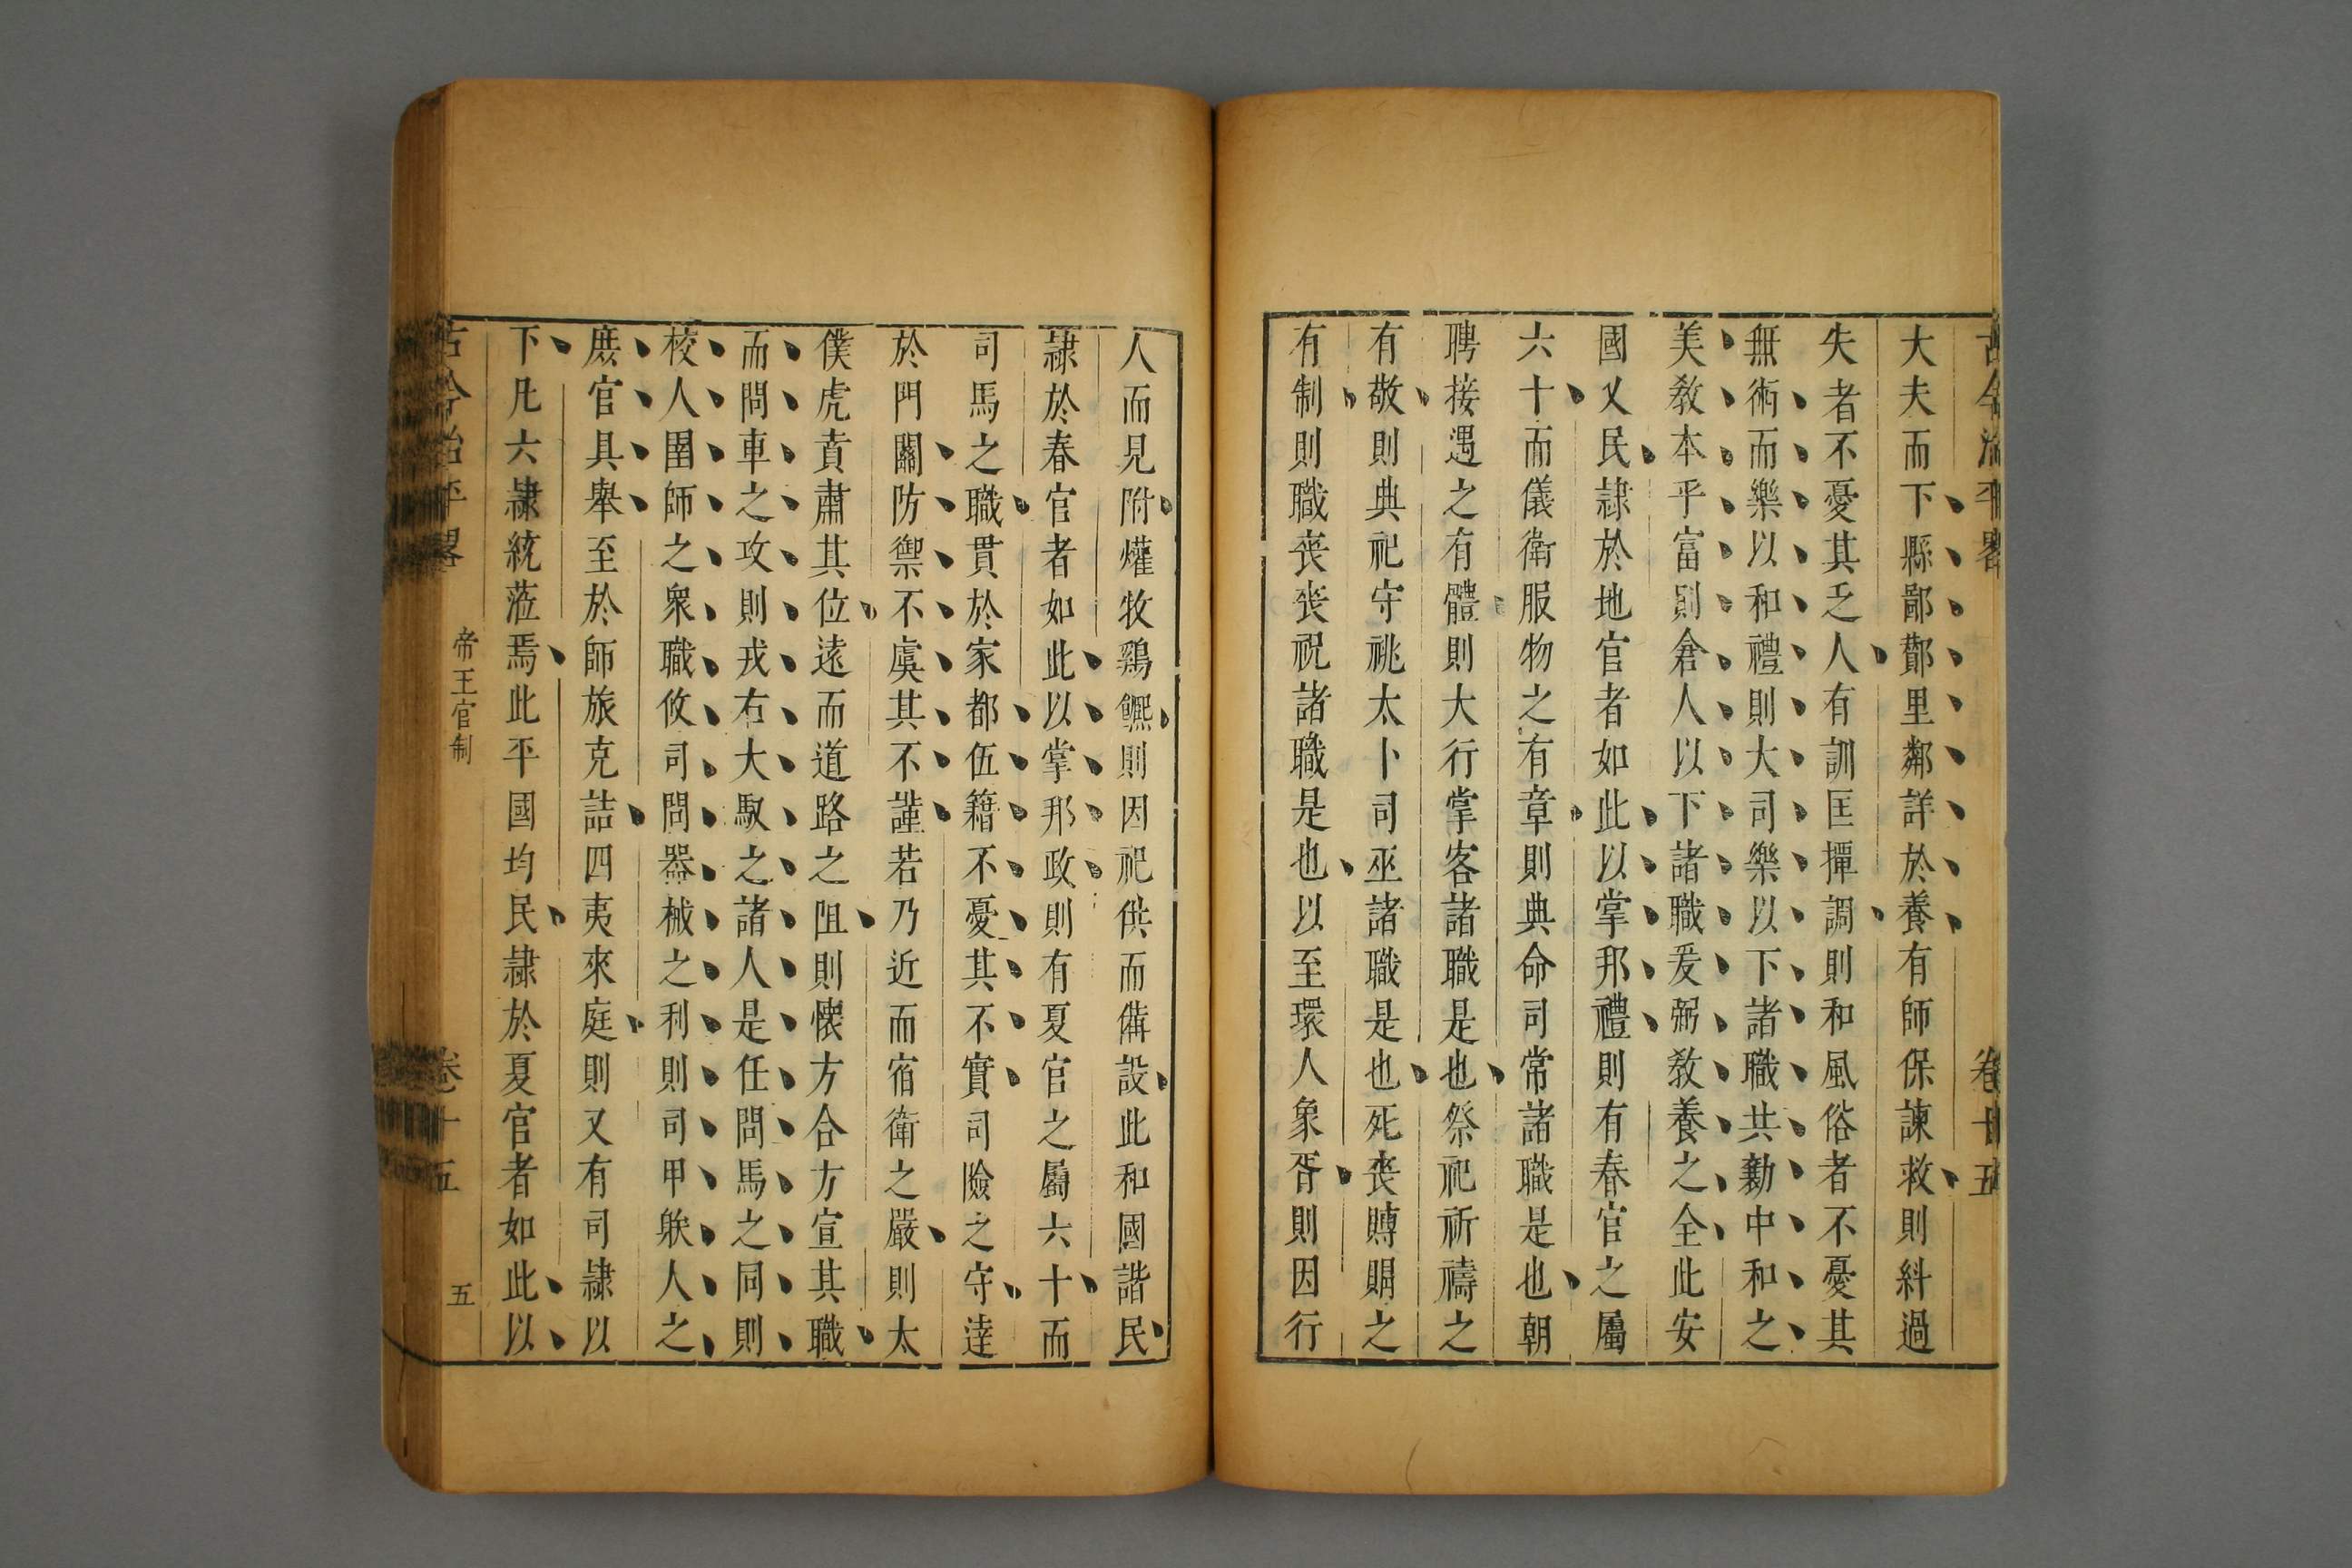 古今治平畧 卷十五
大夫而下縣鄙酇里鄰詳於養有師保諫救則糾過
失者不憂其乏人有訓匡撢調則和風俗者不憂其
無術而樂以和禮則大司樂以下諸職共勷中和之
美敎本乎富則倉人以下諸職爰弼敎養之全此安
國乂民隷於地官者如此以掌邦禮則有春官之屬
六十而儀衛服物之有章則典命司常諸職是也朝
聘接遇之有體則大行掌客諸職是也祭祀祈禱之
有敬則典祀守祧太卜司巫諸職是也死喪賻賵之
有制則職喪喪祝諸職是也以至環人象胥則因行
人而見附爟牧鷄𩼪則因祀供而備設此和國諧民
隷於春官者如此以掌邦政則有夏官之屬六十而
司馬之職貫於家都伍籍不憂其不實司險之守達
於門關防禦不虞其不謹若乃近而宿衛之嚴則太
僕虎賁肅其位遠而道路之阻則懷方合方宣其職
而問車之攻則戎右大馭之諸人是任問馬之同則
校人圉師之衆職攸司問器械之利則司甲躲人之
庶官具舉至於師旅克詰四夷來庭則又有司隷以
下凡六隷統蒞焉此平國均民隷於夏官者如此以
古今治平畧 帝王官制 卷十五 五